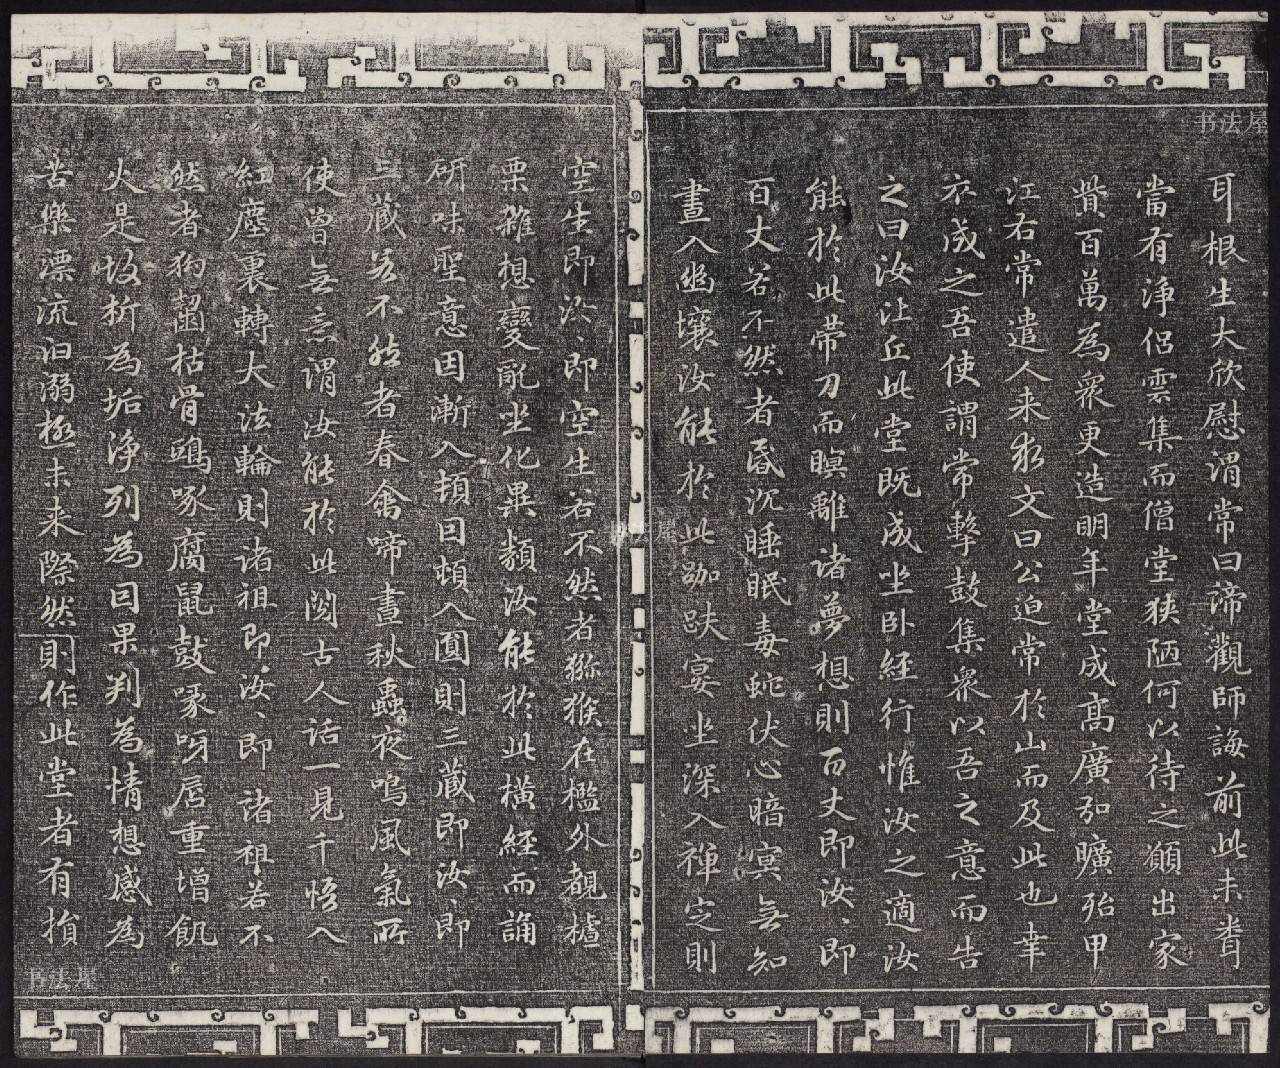 书法屋
耳根生大欣慰渭常曰諦觀師誨前此未聞
當有淨侶雲集而僧堂狹陋何以待之願出家
貲百萬為眾更造明年堂成高廣弘曠殆甲
江右常遣人来求文曰公迫常於山而及此也幸
卒成之吾使謂常擊鼓集眾以吾之意而告
之曰汝江丘此堂既成坐卧経行惟汝之適汝
能於此帶刀而瞑離諸夢想則百丈即汝、即
百丈若不然者昏沉睡眠毒蛇伏心暗冥無知
晝入幽壤汝能於此跏趺宴坐深入禪定則
空生即汝、即空生若不然者獼猴在檻外覩樝
栗雜想變亂坐化異類汝能於此橫経而誦
研味聖意因漸入頓因頓入圓則三藏即汝、即
三藏若不然者春禽啼晝秋蟲夜鳴風氣所
使曾無意謂汝能於此閱古人話一見千悟入
紅塵裏轉大法輪則諸祖即汝、即諸祖若不
然者狗齧枯骨鴟啄腐鼠鼓喙呀唇重增飢
火是故析為垢淨列為因果判為情想感為
苦樂漂流汩溺極未来際然則作此堂者有損
书法屋
书法屋